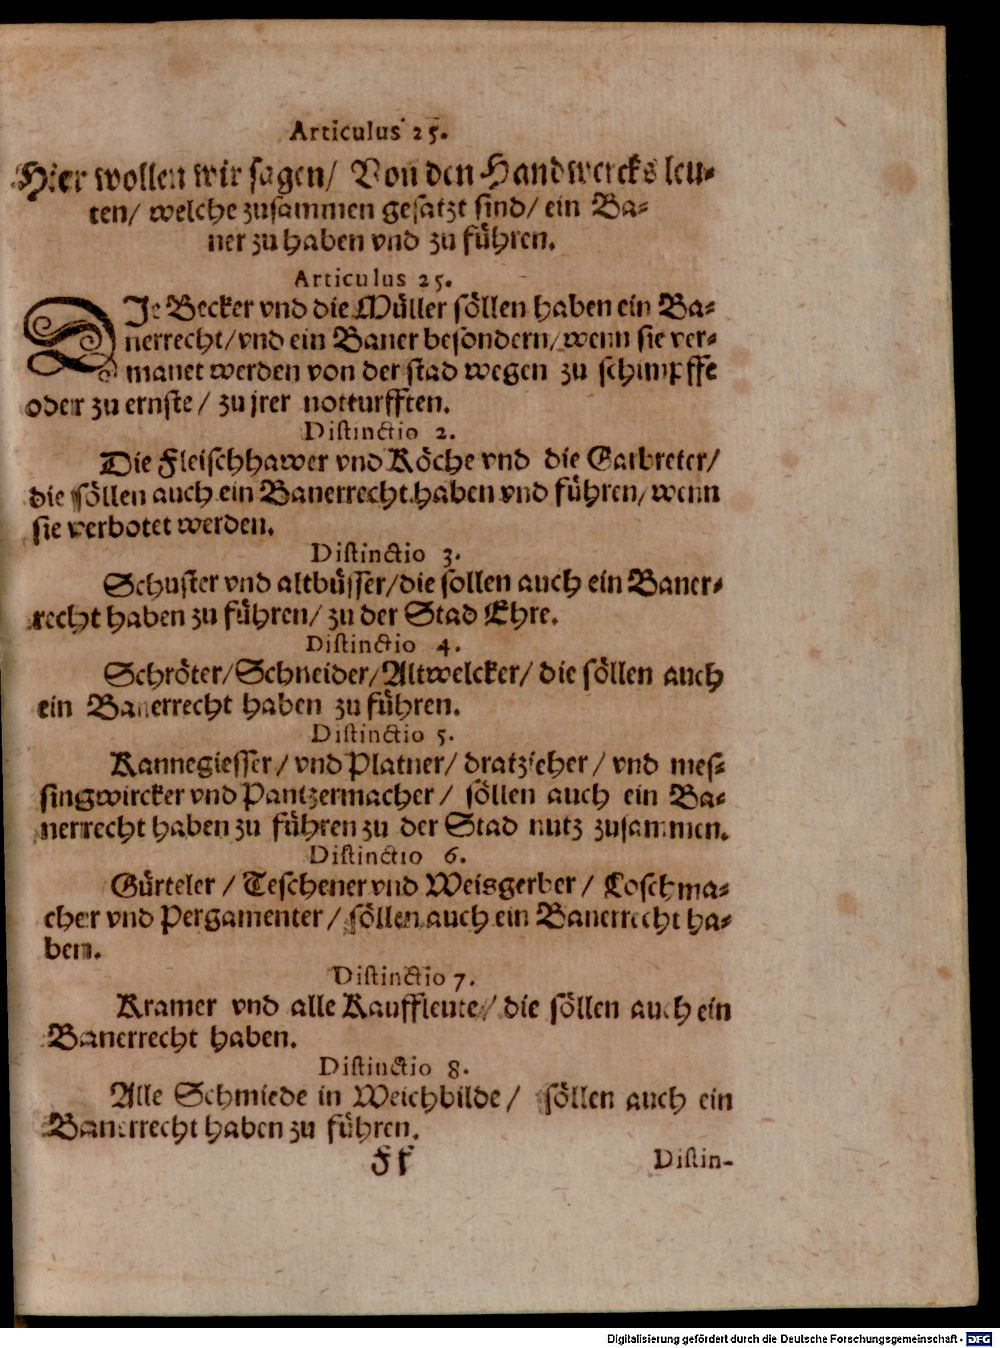 Articulus 25.
Hier wollen wir sagen/ Von den Handwercks leu-
ten/ welche zusammen gesatzt sind/ ein Ba-
ner zu haben vnd zu führen.
Articulus 25.
DIe Becker vnd die Müller söllen haben ein Ba-
nerrecht/ vnd ein Baner besondern/ wenn sie ver-
manet werden von der stad wegen zu schimpffe
oder zu ernste/ zu jrer notturfften.
Distinctio 2.
Die Fleischhawer vnd Köche vnd die Garbreter/
die söllen auch ein Banerrecht haben vnd führen/ wenn
sie verbotet werden.
Distinctio 3.
Schuster vnd altbüsser/ die sollen auch ein Baner-
recht haben zu führen/ zu der Stad Ehre.
Distinctio 4.
Schröter/ Schneider/ Altwelcker/ die söllen auch
ein Banerrecht haben zu führen.
Distinctio 5.
Kannegiesser/ vnd Platner/ dratzieher/ vnd mes-
singwircker vnd Pantzermacher/ söllen auch ein Ba-
nerrecht haben zu führen zu der Stad nutz zusammen.
Distinctio 6.
Gürteler/ Teschener vnd Weisgerber/ Loschma-
cher vnd Pergamenter/ söllen auch ein Banerrecht ha-
ben.
Distinctio 7.
Kramer vnd alle Kauffleute/ die söllen auch ein
Banerrecht haben.
Distinctio 8.
Alle Schmiede in Weichbilde/ söllen auch ein
Banerrecht haben zu führen.
Ff Distin-
Digitalisierung gefördert durch die Deutsche Forschungsgemeinschaft - DFG